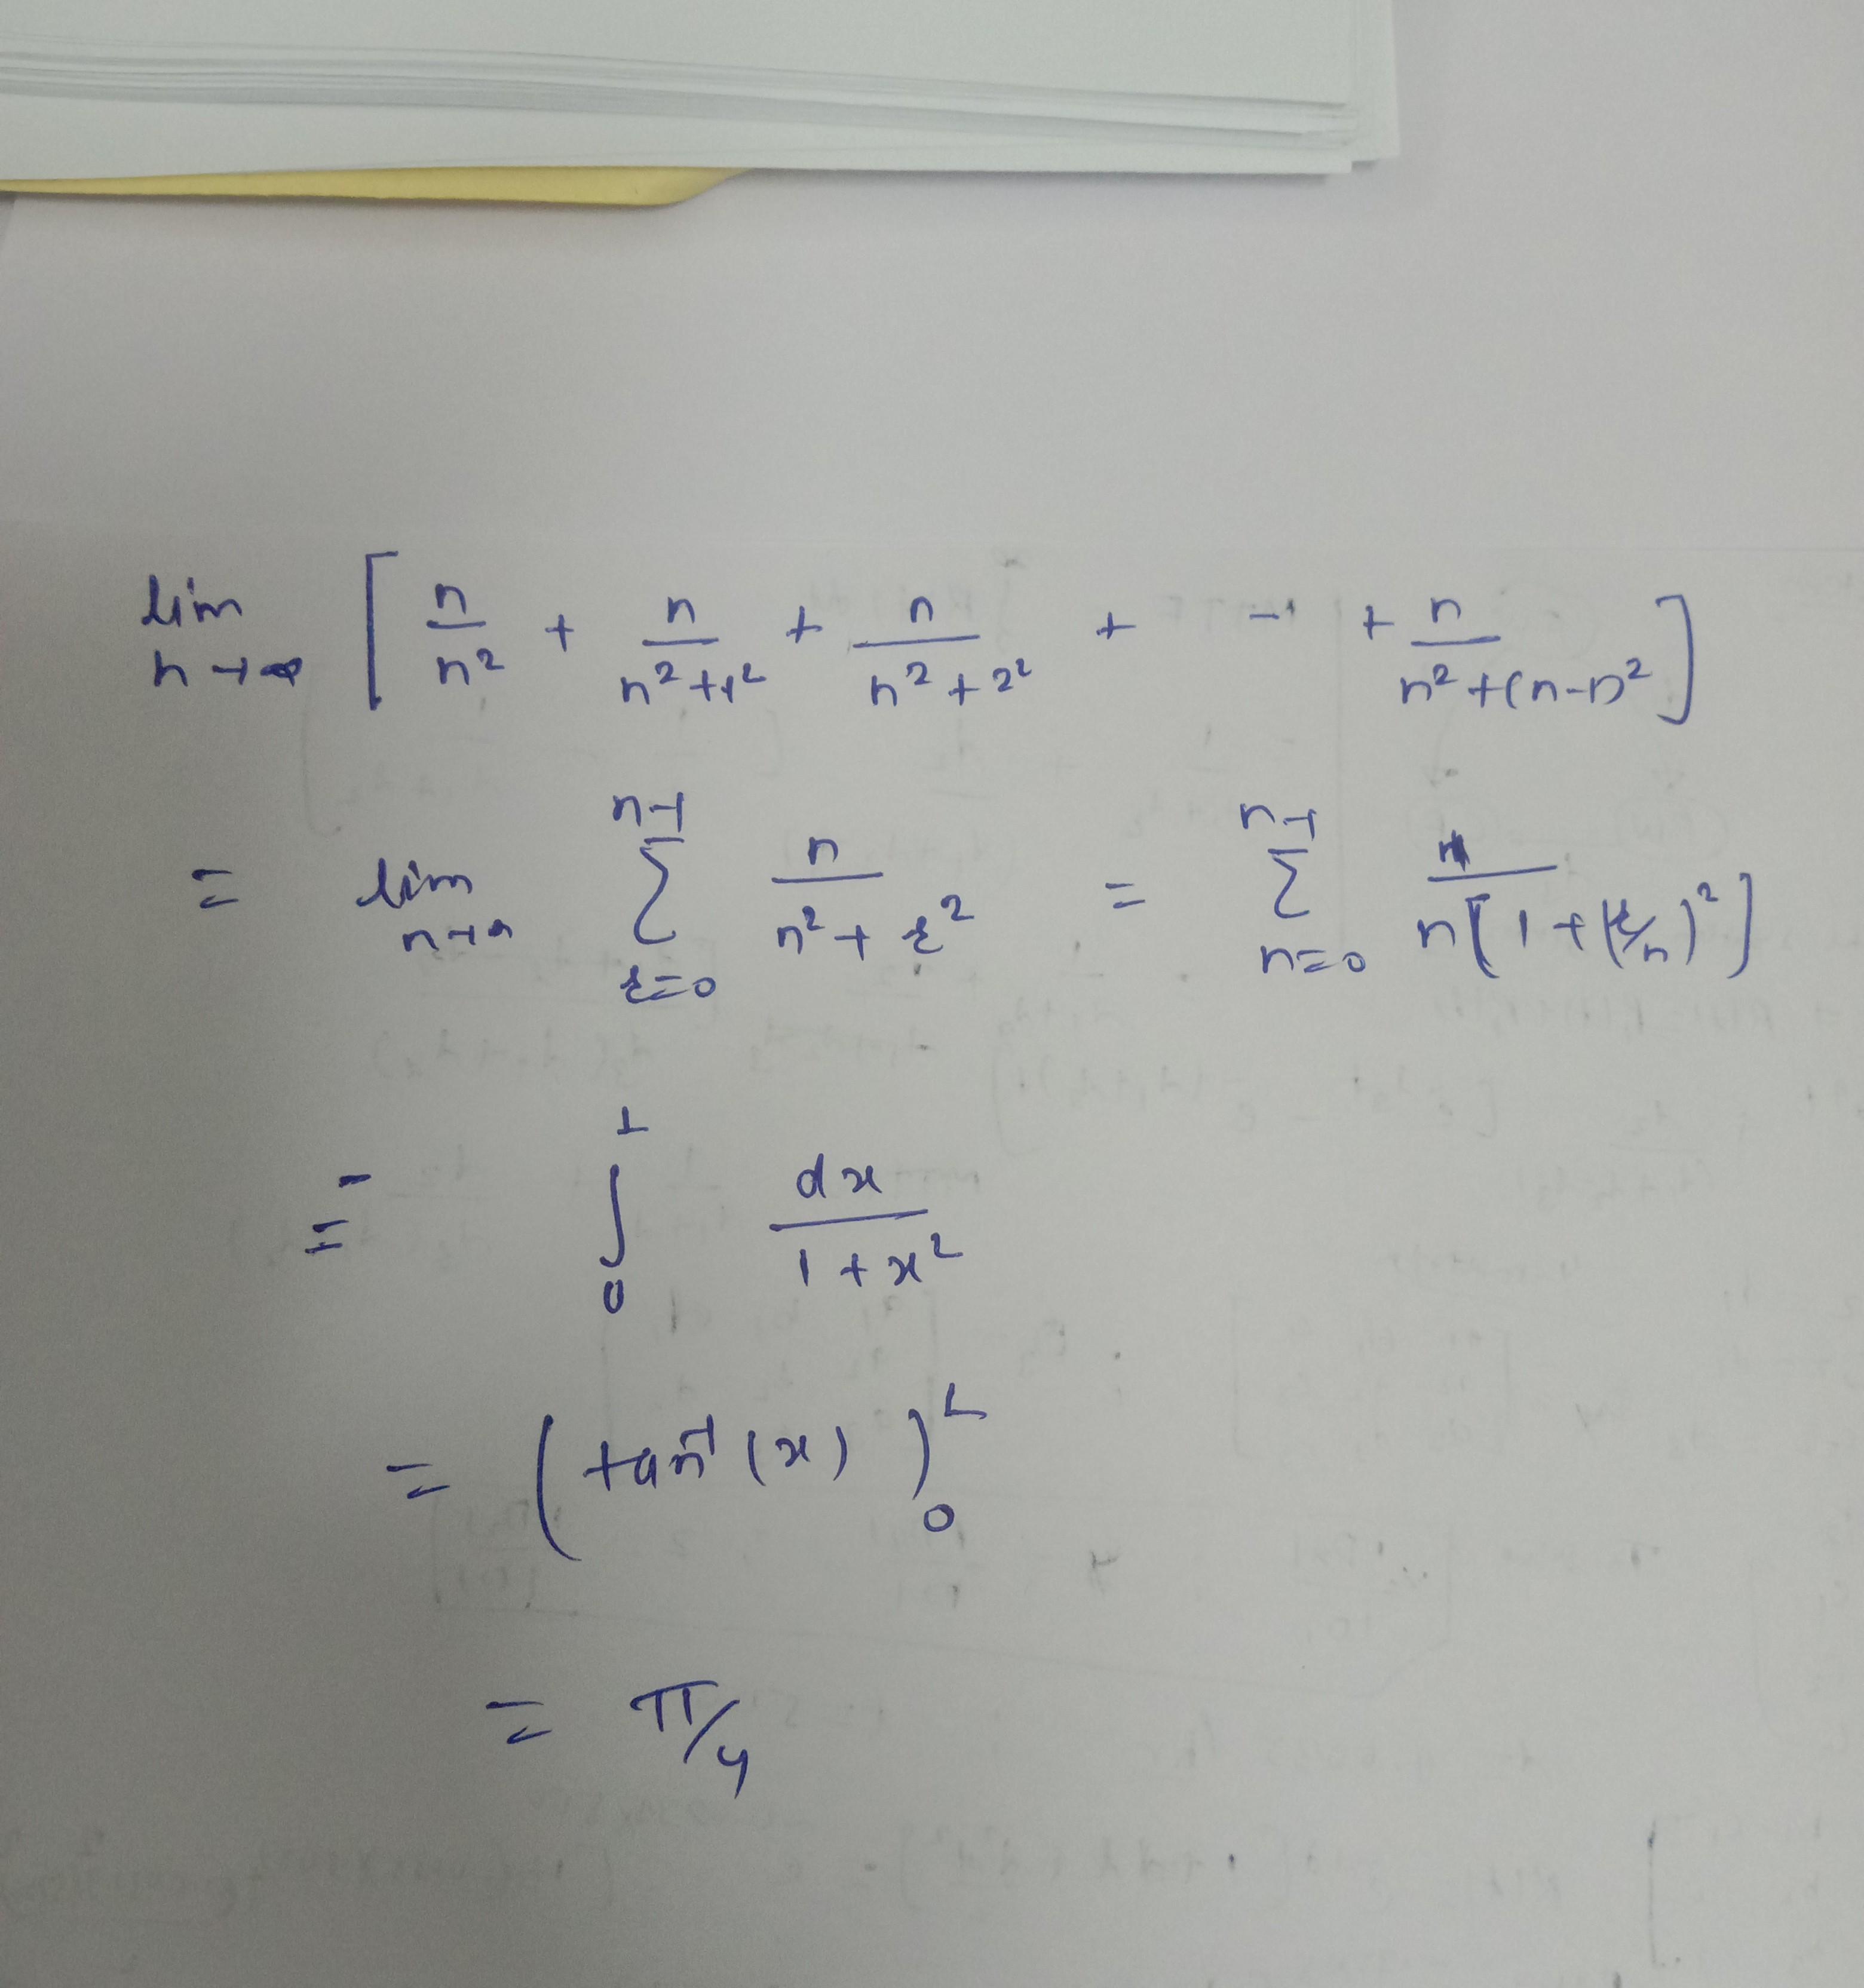 lim n→∞ [ n/n² + n/(n²+1²) + n/(n²+2²) + - - + n/(n²+(n-1)²) ]
= lim n→∞ Σ_{r=0}^{n-1} n/(n²+r²) = Σ_{n=0}^{n-1} 1/(n[1+(r/n)²])
= ∫_0^1 dx/(1+x²)
= (tan⁻¹(x))_0^1
= π/4